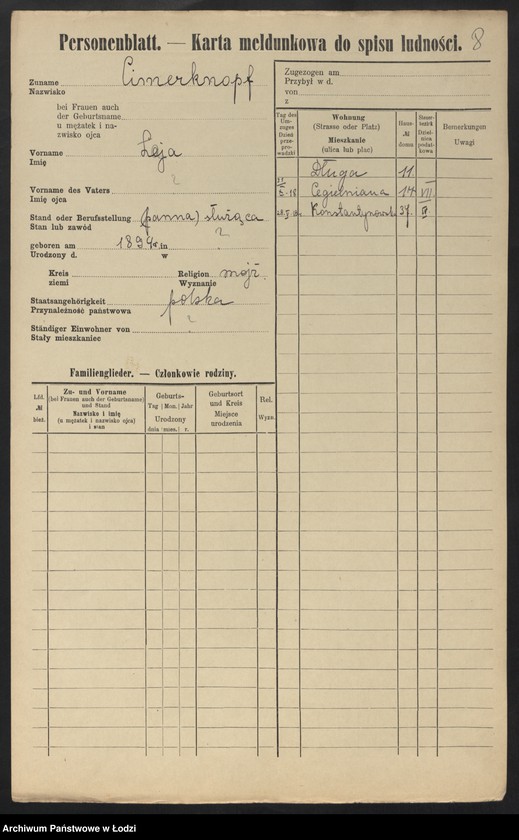 Personenblatt. — Karta meldunkowa do spisu ludności. 8
Zuname Cimerknopf
Nazwisko
bei Frauen auch
der Geburtsname
u mężatek i na-
zwisko ojca
Vorname Łaja
Imię
Vorname des Vaters
Imię ojca
Stand oder Berufsstellung (panna) służąca
Stan lub zawód
geboren am 1894 r. in
Urodzony d. w
Kreis Religion mojż.
ziemi Wyznanie
Staatsangehörigkeit polska
Przynależność państwowa
Ständiger Einwohner von
Stały mieszkaniec
Zugezogen am
Przybył w d.
von
z
Tag des Um-zuges Dzień prze-pro-wadzki
Wohnung
(Strasse oder Platz)
Mieszkanie
(ulica lub plac)
Haus-
№
domu
Bemerkungen
Uwagi
Długa 11.
Cegielniana 14 VII
Konstantynowska 37.
Familienglieder. — Członkowie rodziny.
Lfd.
№
bież.
Zu- und Vorname
(bei Frauen auch der Geburtsname)
und Stand
Nazwisko i imię
(u mężatek i nazwisko ojca)
i stan
Geburts-
Tag | Mon. | Jahr
Urodzony
dnia mies. r.
Geburtsort
und Kreis
Miejsce
urodzenia
Rel.
Wyzn.
Archiwum Państwowe w Łodzi